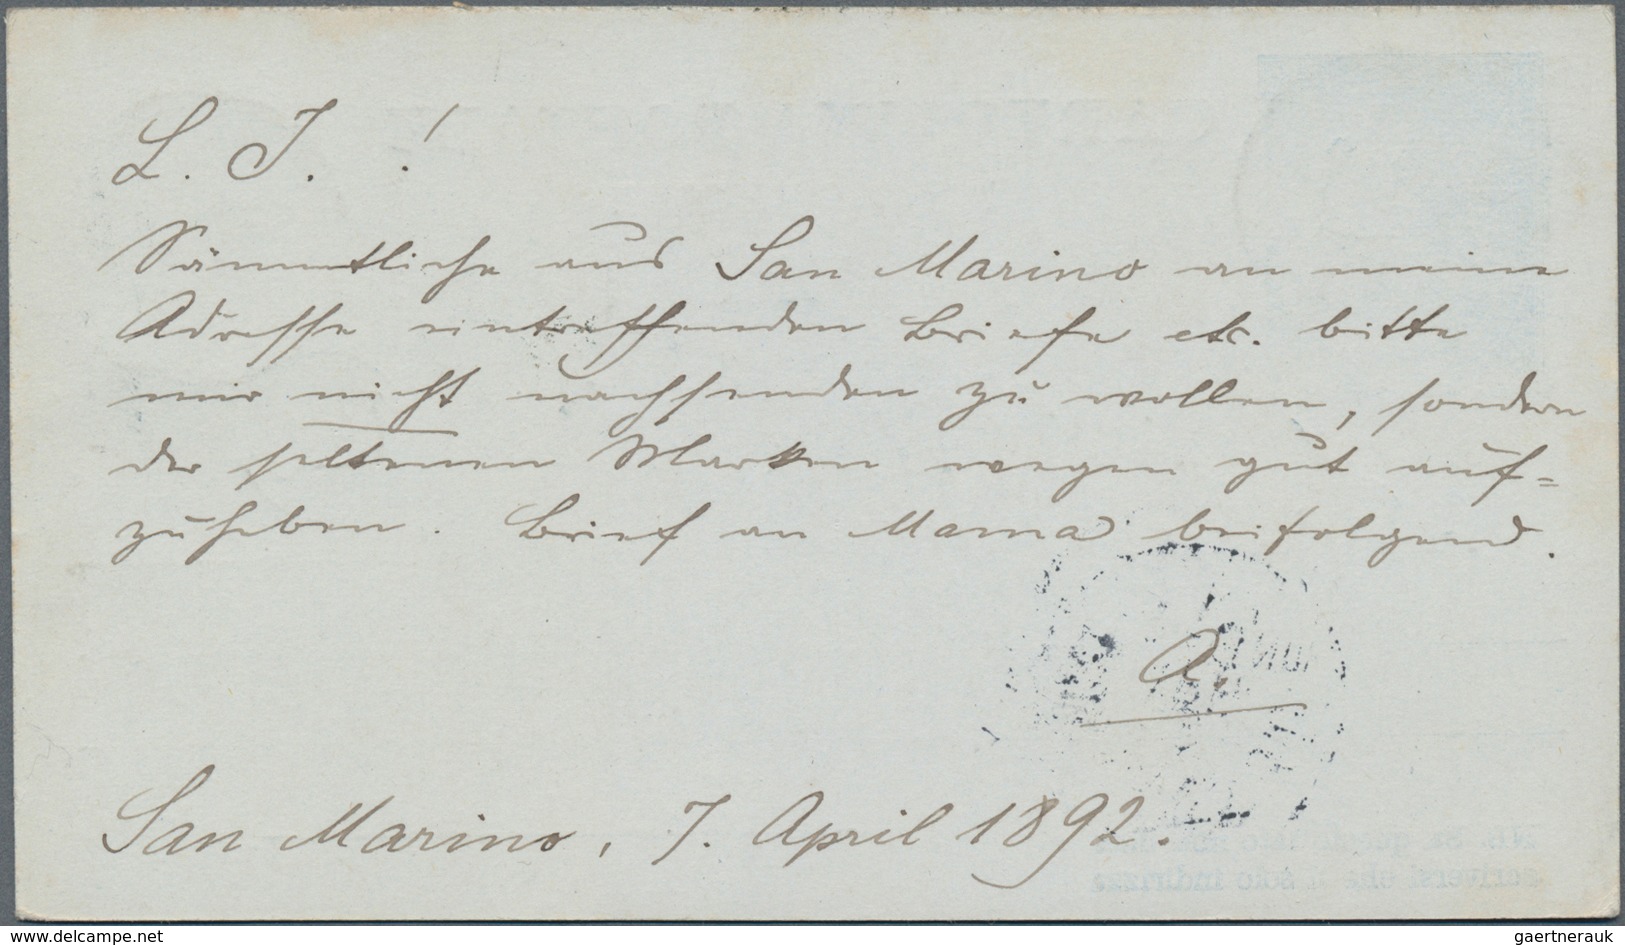 L. J. !
Sämmtliche aus San Marino an meine
Adresse eintreffenden Briefe etc. bitte
mir nicht nachsenden zu wollen, sondern
der seltenen Marken wegen gut auf=
zuheben. Brief an Mama beifolgend.
A.
San Marino, 7. April 1892.
www.delcampe.net
gaertnerauk